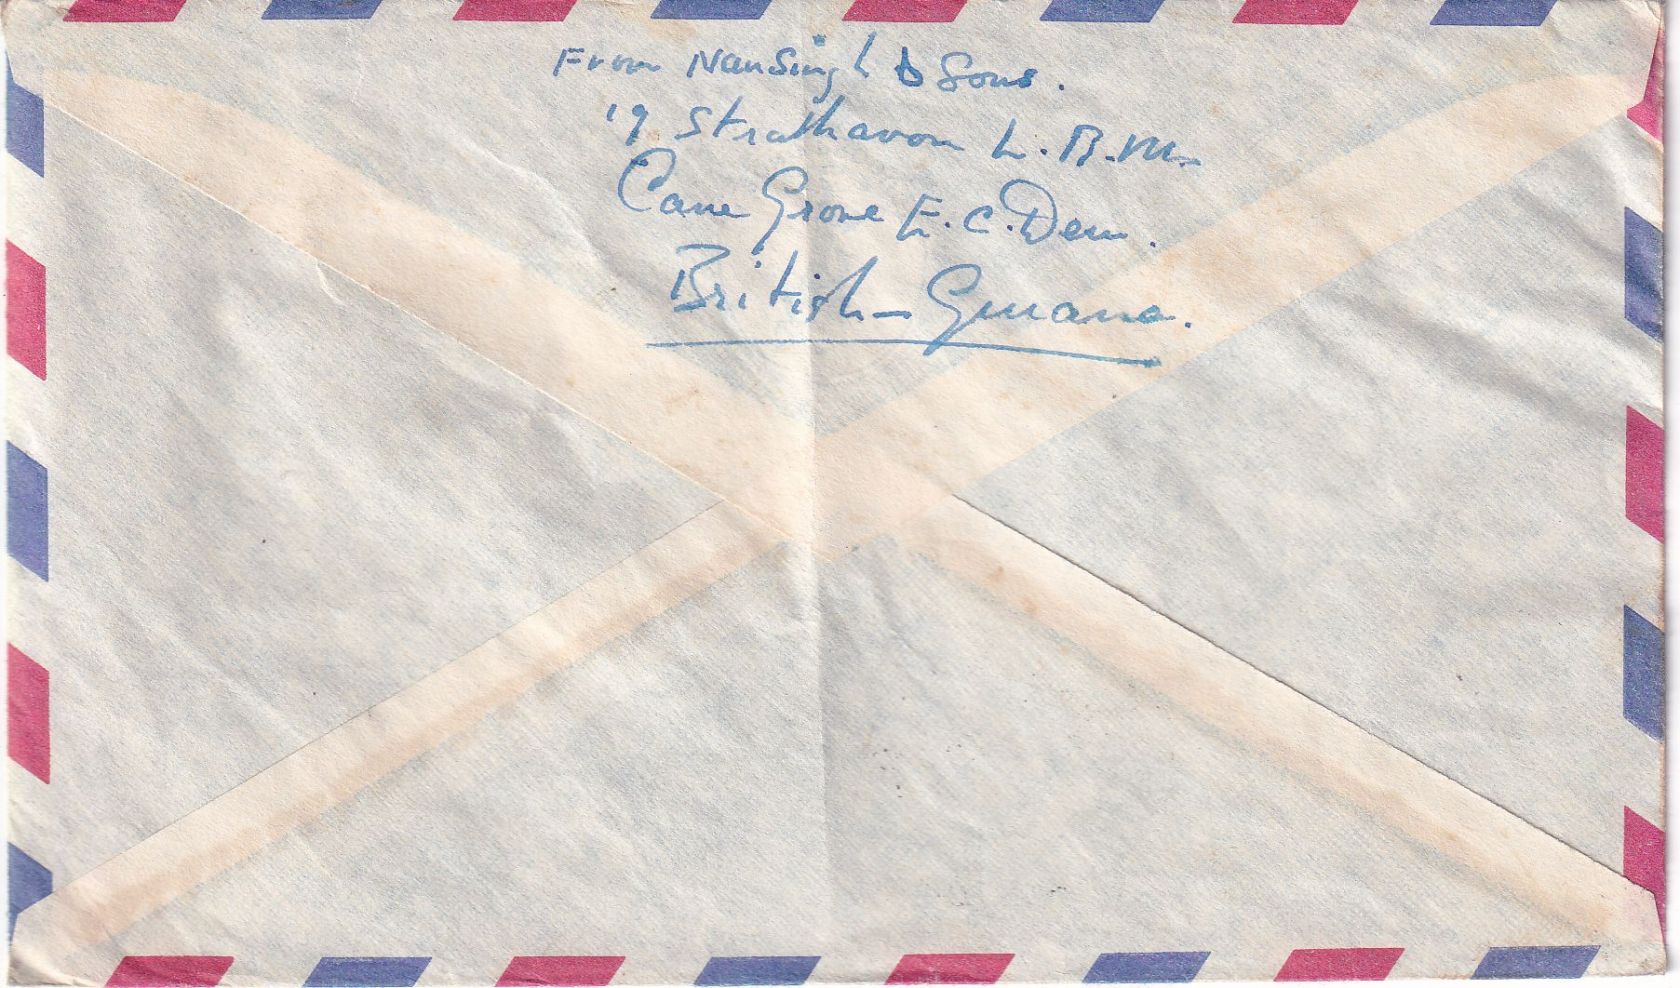 From Nansingh & Sons.
19 Strathavon L.B.M.
Cane Grove E.C. Dem.
British-Guiana.